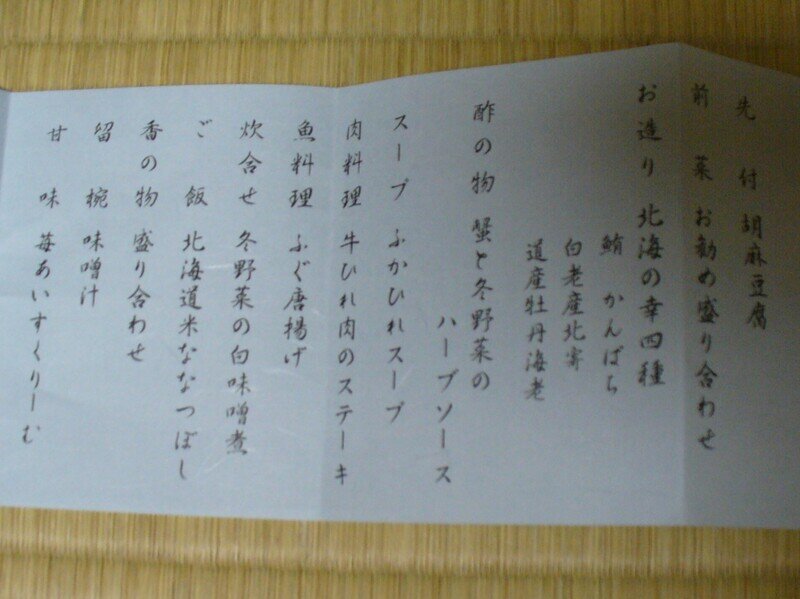 先付 胡麻豆腐
前菜 お勧め盛り合わせ
お造り 北海の幸四種
鮪 かんぱち
白老産北寄
道産牡丹海老
酢の物 蟹と冬野菜の
ハーブソース
スープ ふかひれスープ
肉料理 牛ひれ肉のステーキ
魚料理 ふぐ唐揚げ
炊合せ 冬野菜の白味噌煮
ご飯 北海道米ななつぼし
香の物 盛り合わせ
留椀 味噌汁
甘味 苺あいすくりーむ